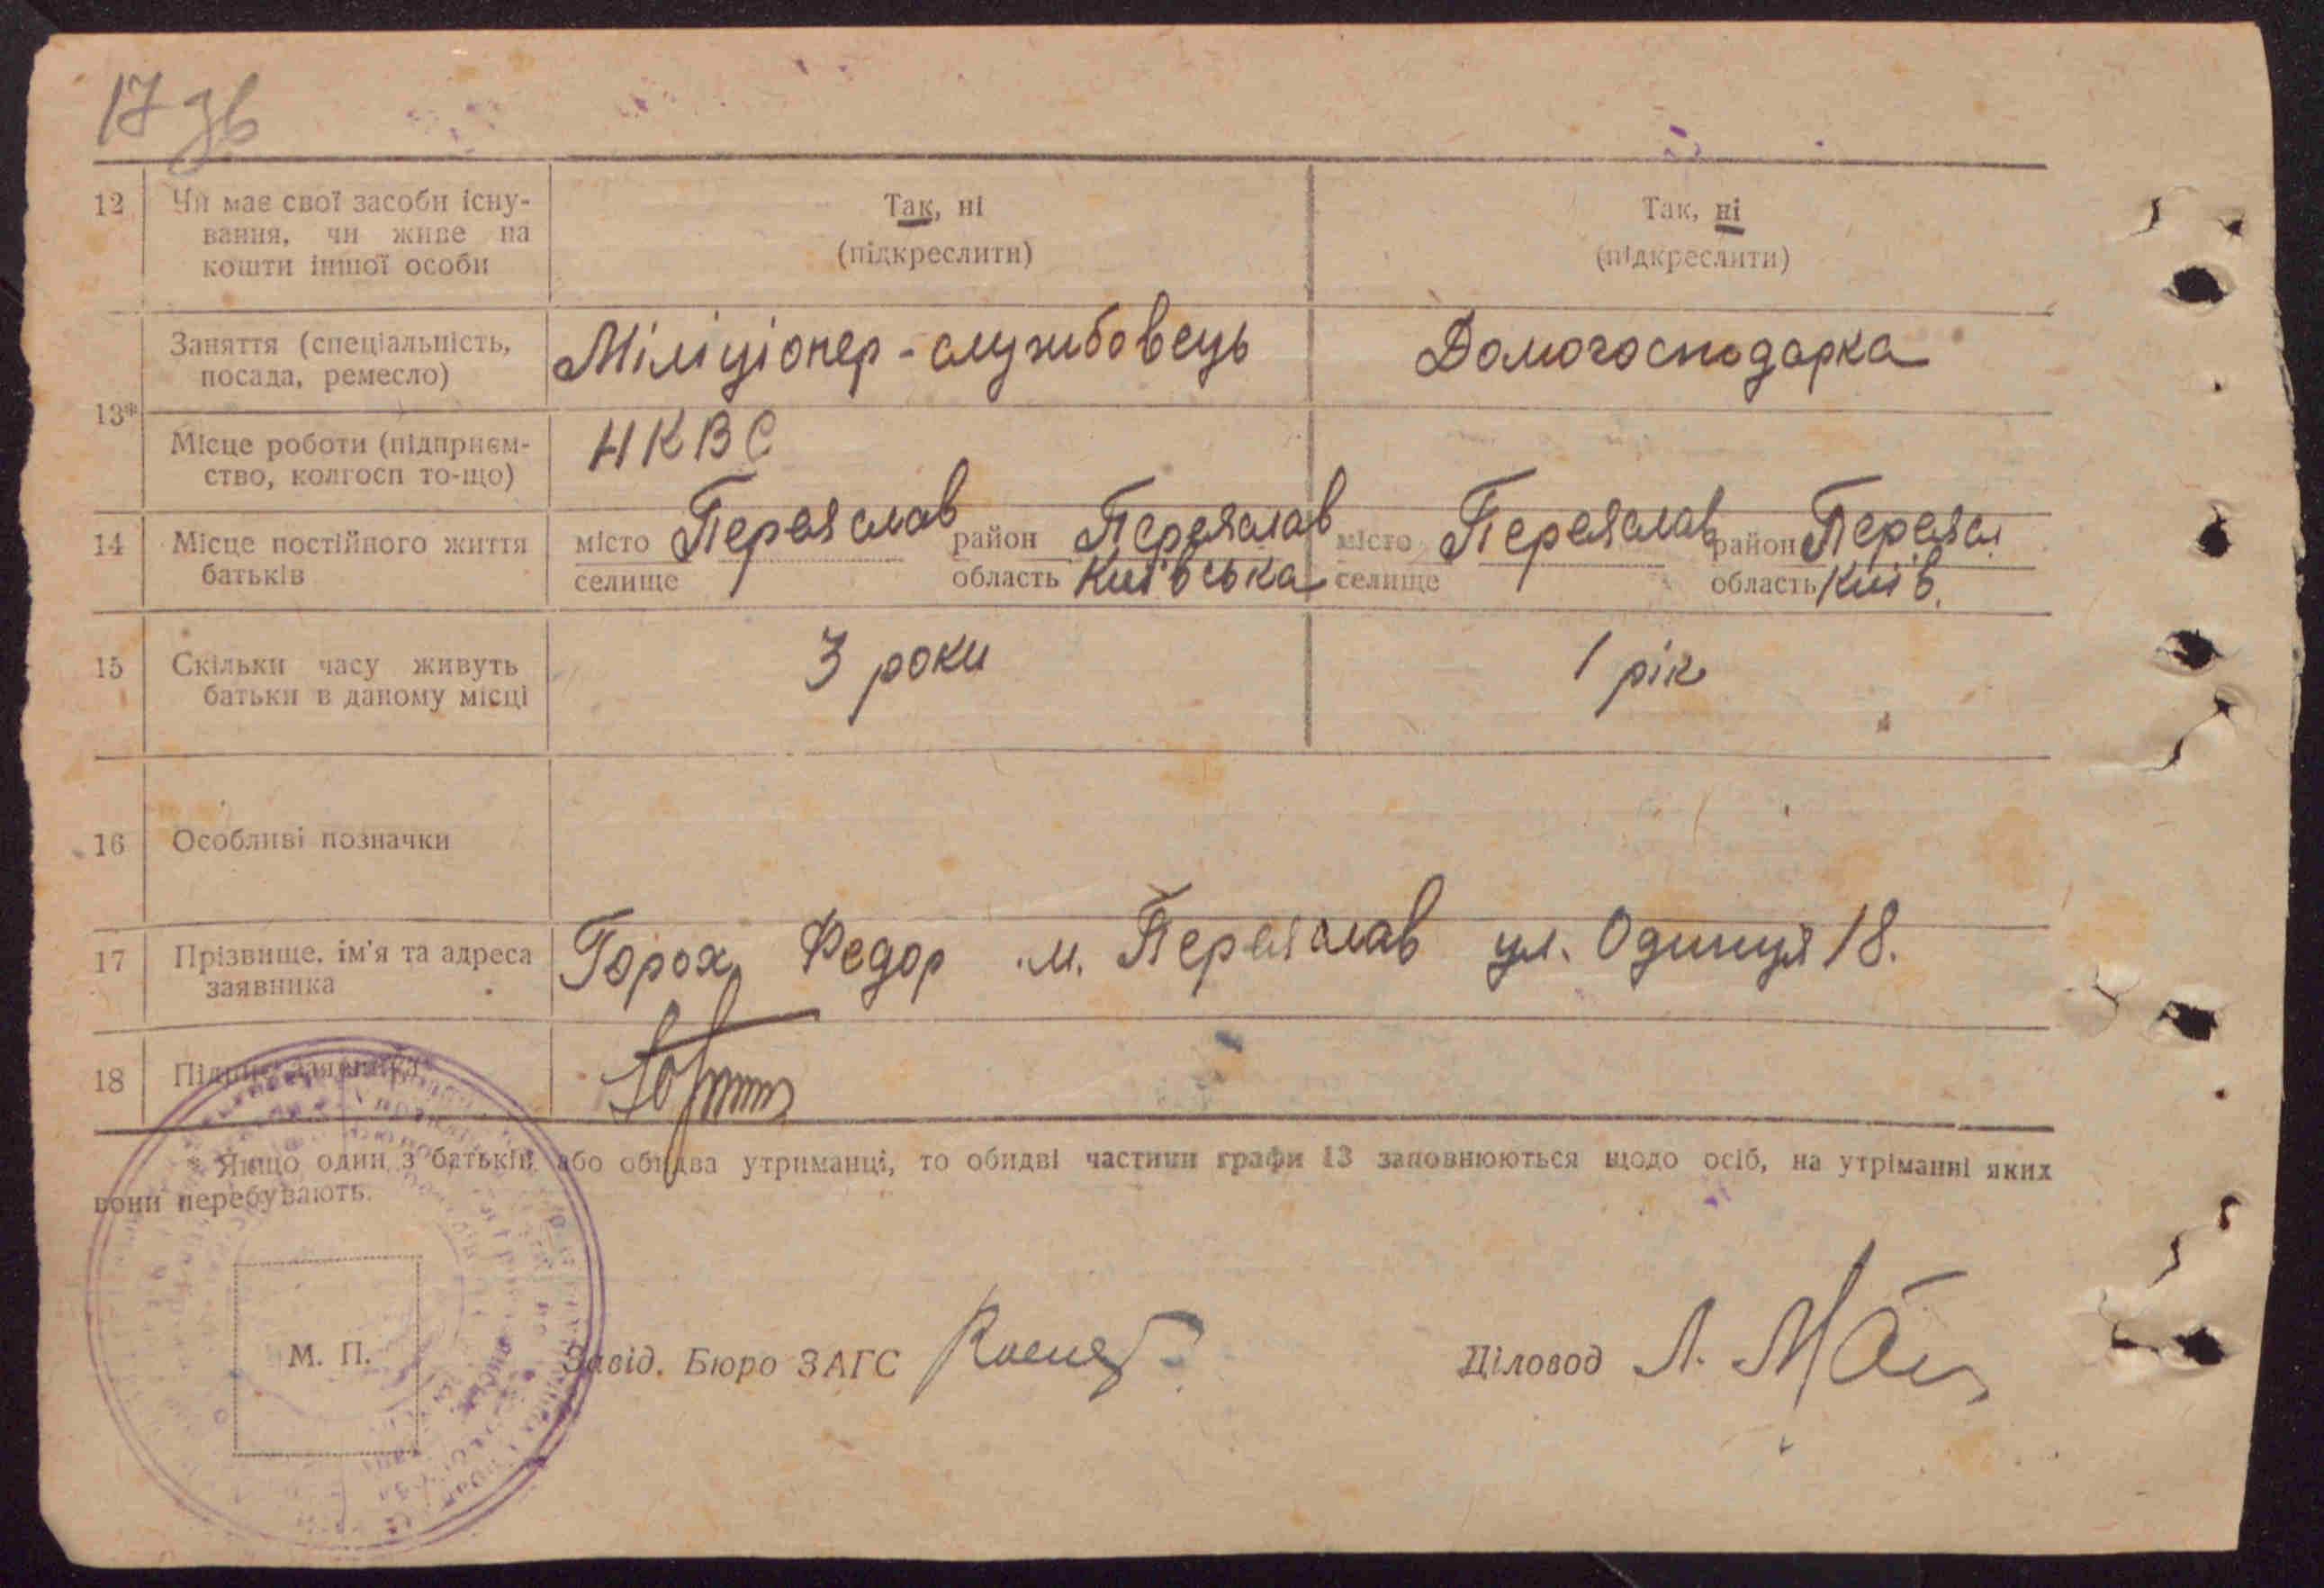 17 зв
12 Чи має свої засоби існу-
вання, чи живе на
кошти іншої особи
Так, ні
(підкреслити)
Так, ні
(підкреслити)
13*
Заняття (спеціальність,
посада, ремесло)
Міліціонер - службовець
Домогосподарка
Місце роботи (підприєм-
ство, колгосп то-що)
НКВС
14 Місце постійного життя
батьків
місто Переяслав район Переяслав
селище область Київська
місто Переяслав район Переясл.
селище область Київ.
15 Скільки часу живуть
батьки в даному місці
3 роки
1 рік
16 Особливі позначки
17 Прізвище, ім'я та адреса
заявника
Горох Федор м. Переяслав ул. Одинця 18.
18 Підпис заявника
* Якщо один з батьків або обидва утриманці, то обидві частини графи 13 заповнюються щодо осіб, на утріманні яких
вони перебувають.
М. П.
Завід. Бюро ЗАГС
Діловод Л.